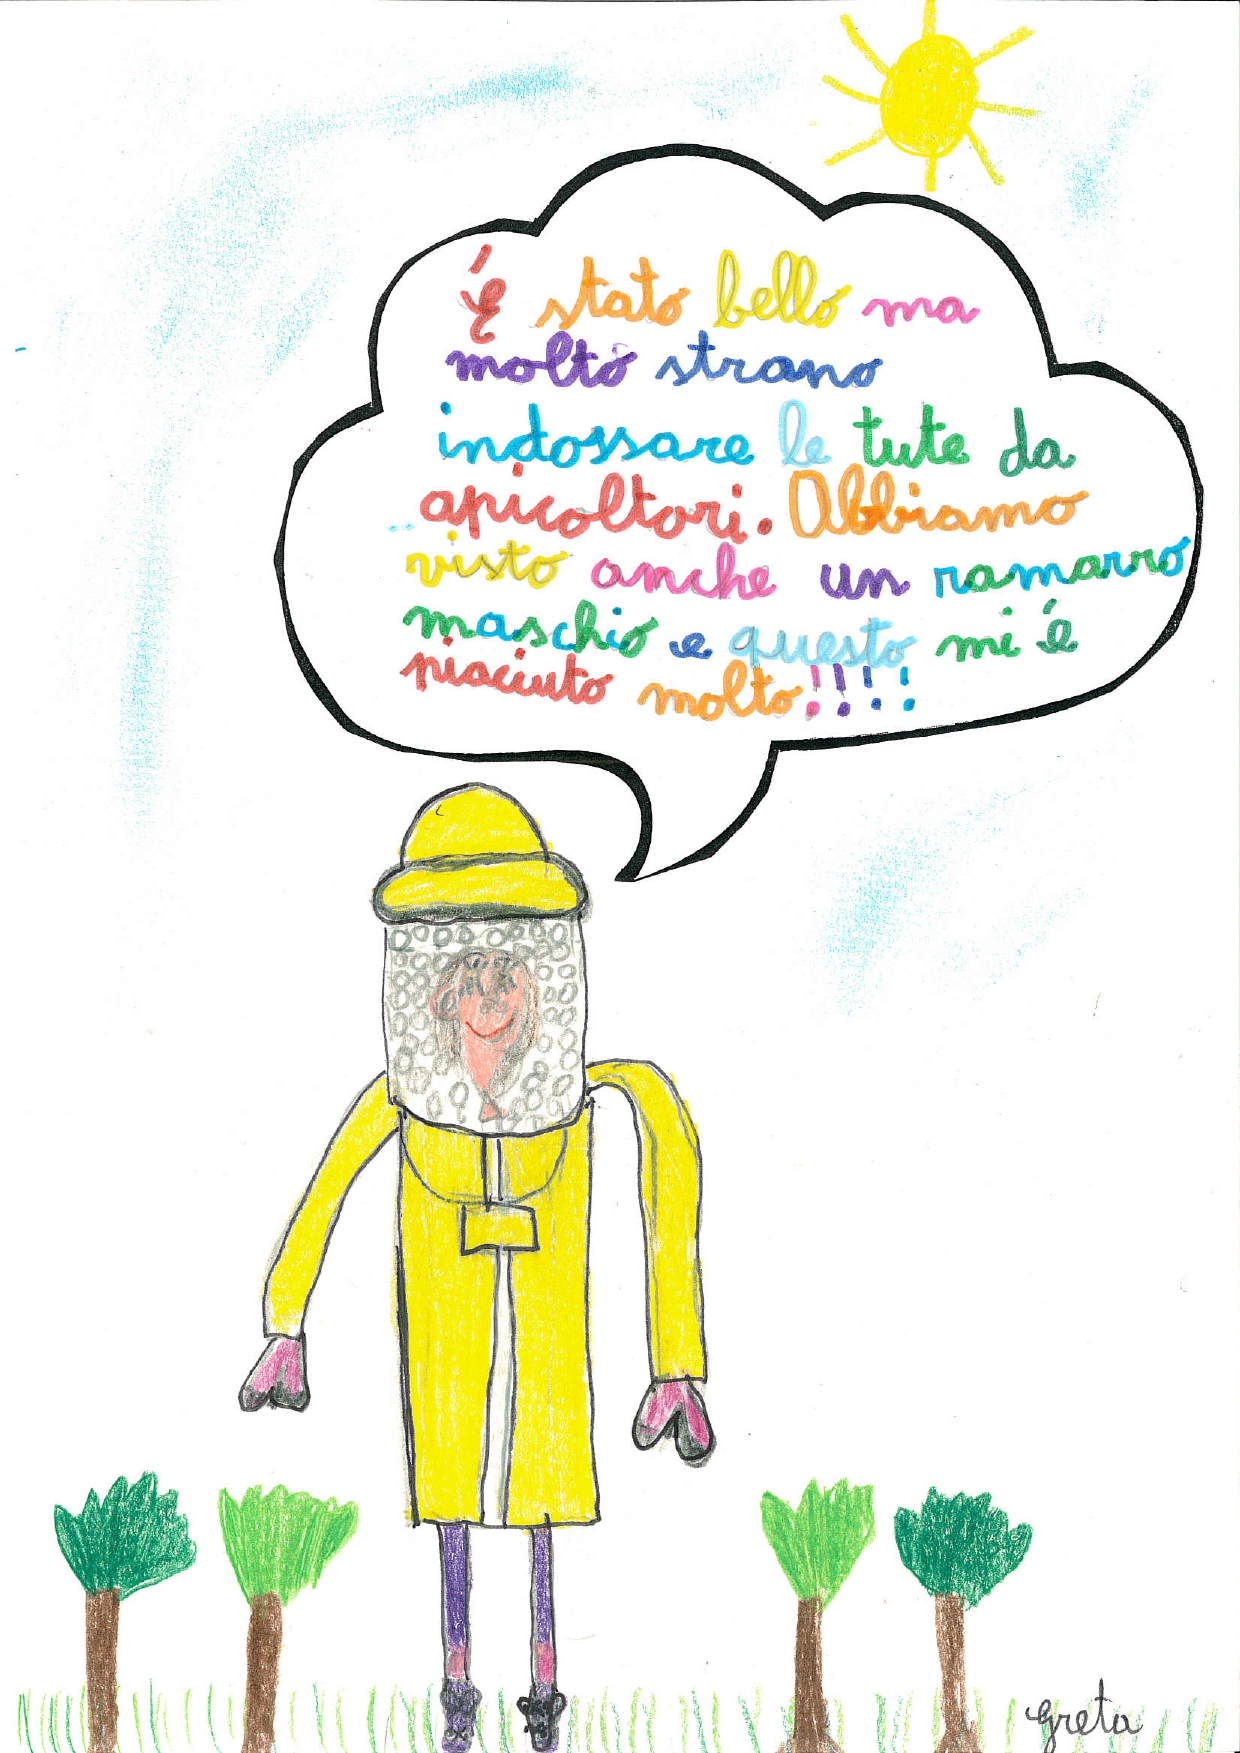 É stato bello ma
molto strano
indossare le tute da
apicoltori. Abbiamo
visto anche un ramarro
maschio e questo mi é
piaciuto molto!!!!
greta